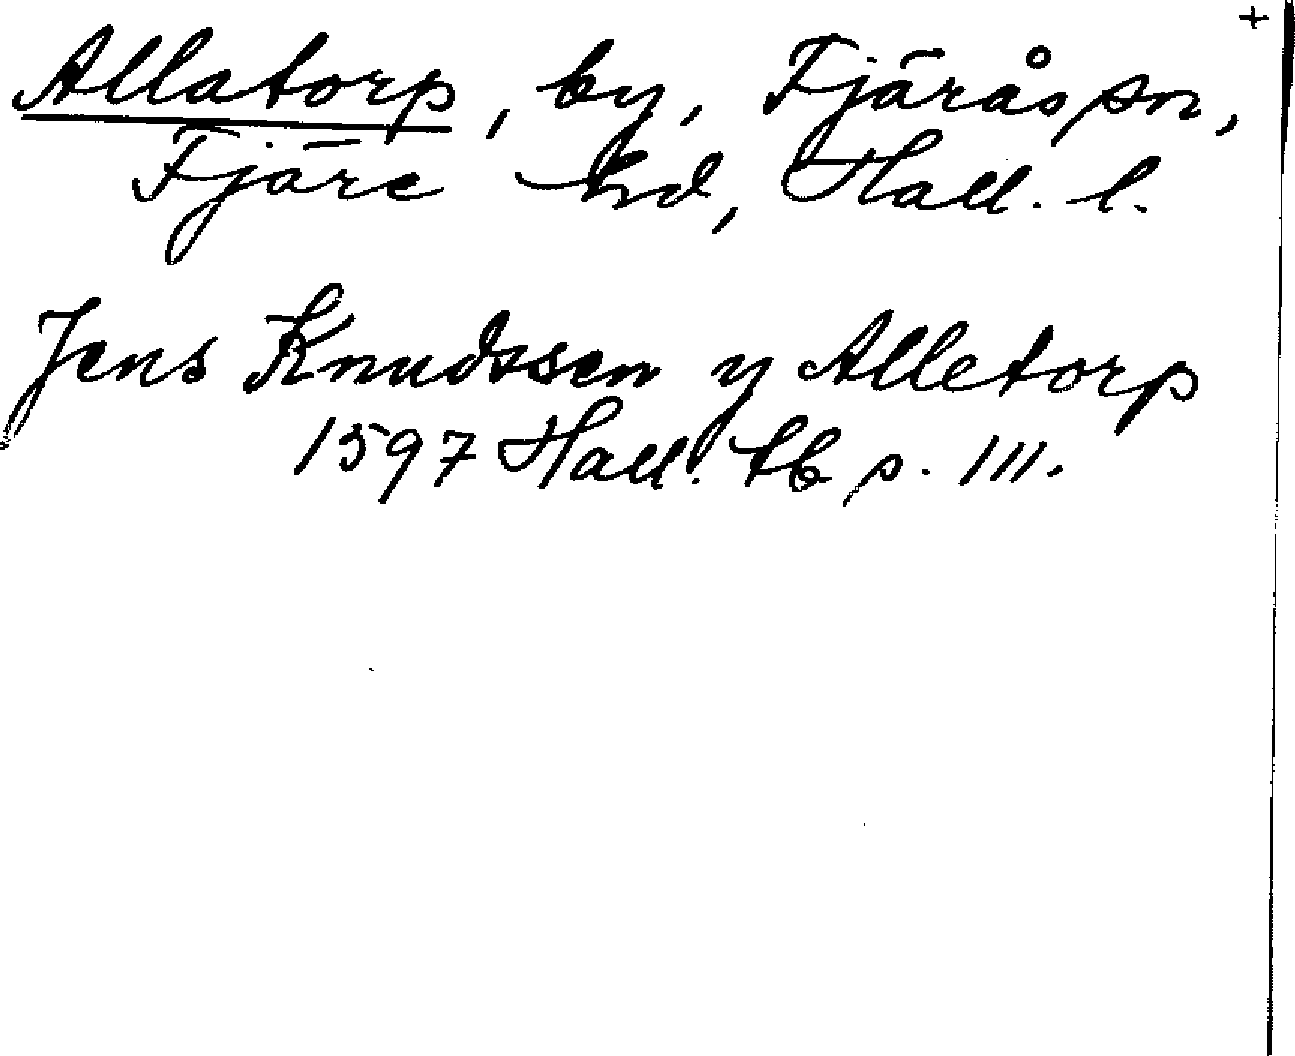 +
Allatorp, by, Fjärås sn,
Fjäre hd, Hall. l.
Jens Knudssen y Alletorp
1597 Hall. tb s. 111.